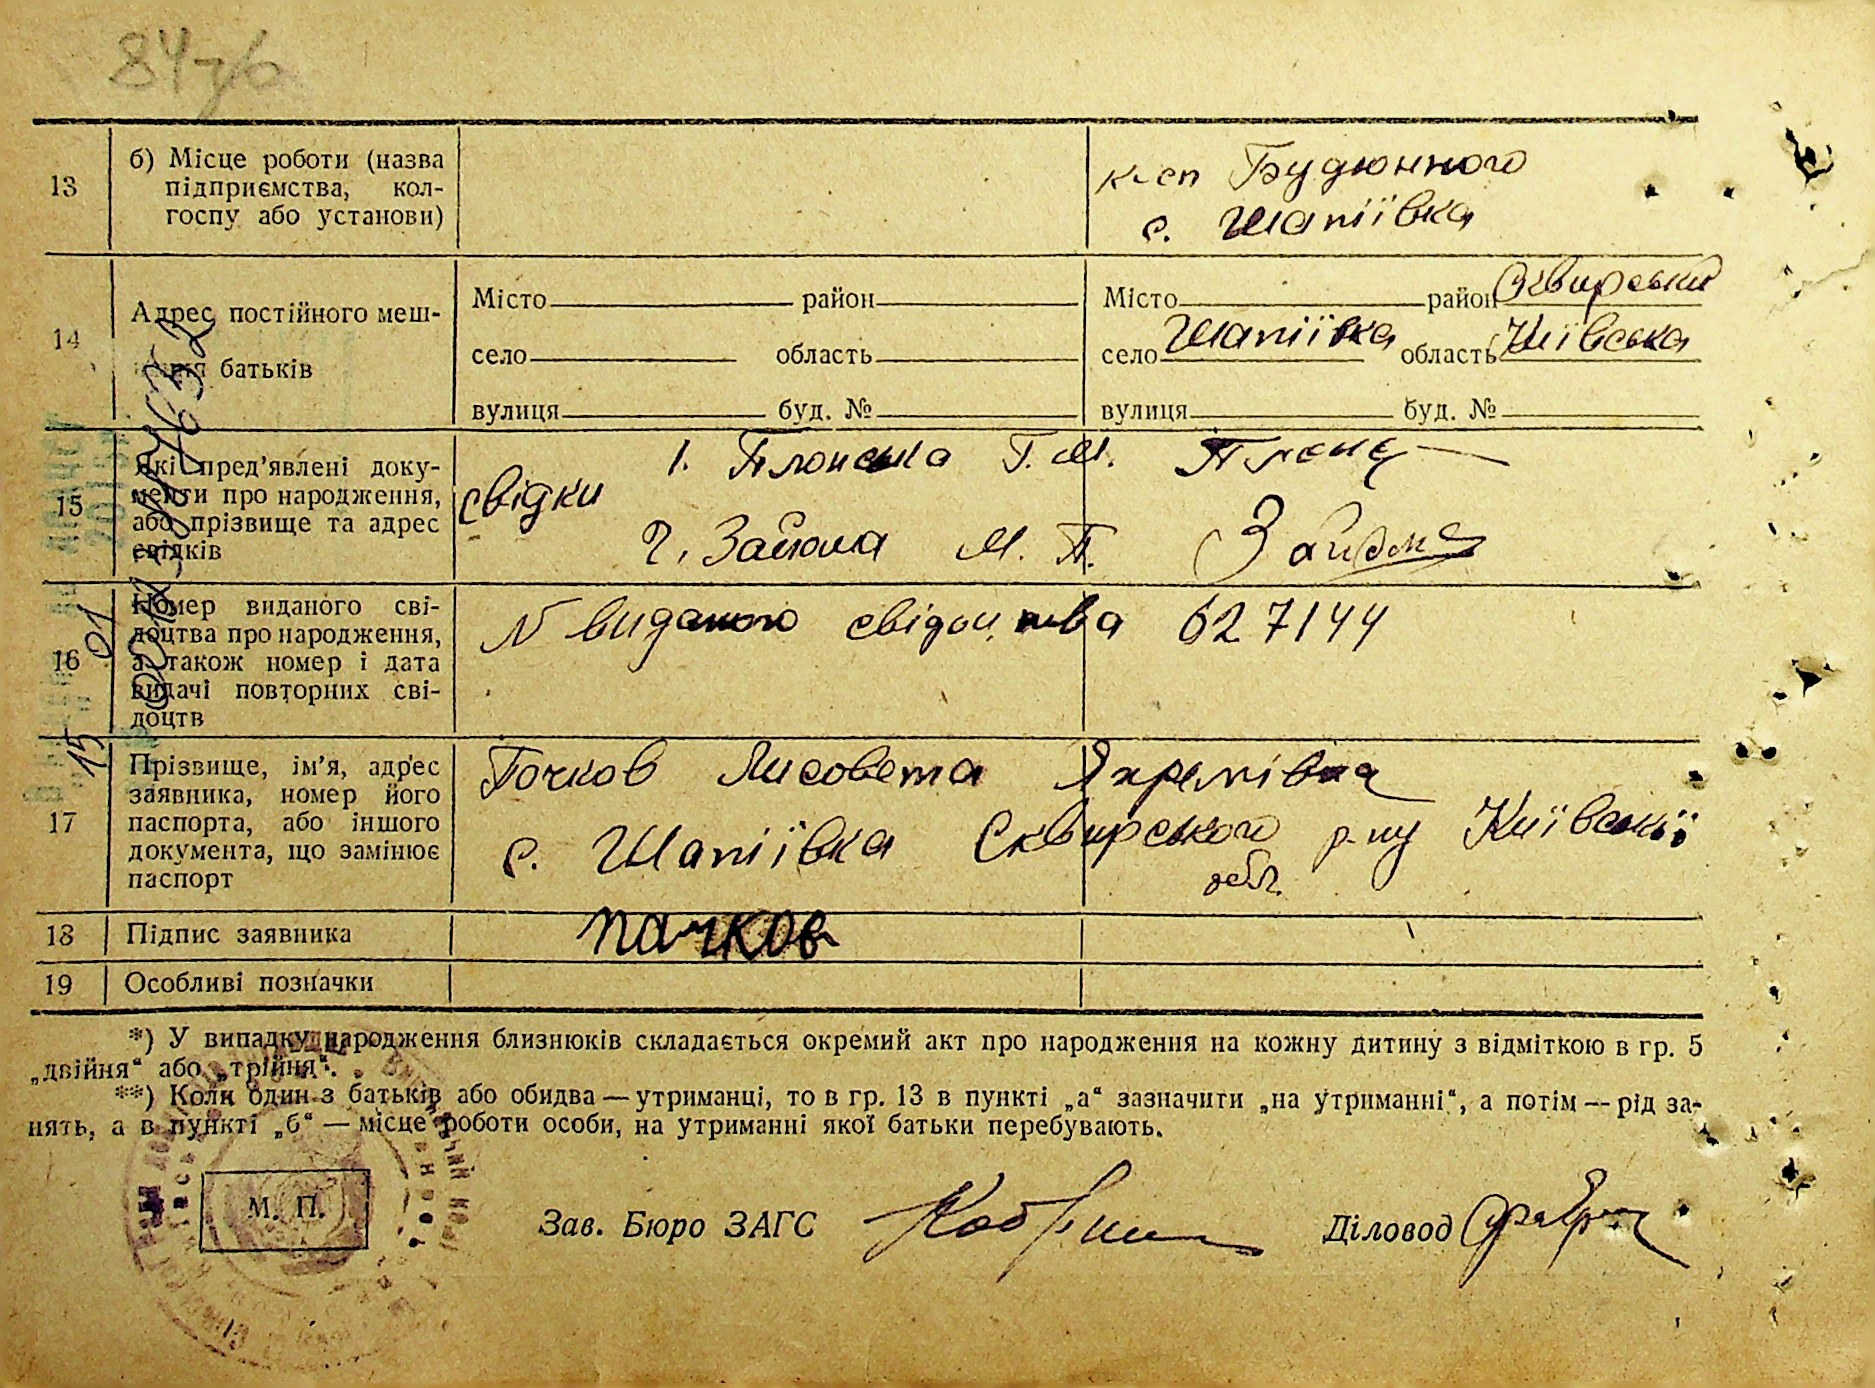 13
б) Місце роботи (назва
підприємства, кол-
госпу або установи)
к-сп Будюнного
с. Шапіївка
14
Адрес постійного меш-
батьків
Місто район
село область
вулиця буд. №
Місто район Сквирський
село Шапіївка область Київська
вулиця буд. №
15
Які пред’явлені доку-
менти про народження,
або прізвище та адрес
свідків
свідки
1. Г. М.
2. М. П.
16
Номер виданого сві-
доцтва про народження,
а також номер і дата
видачі повторних сві-
доцтв
N виданого свідоцтва 627144
17
Прізвище, ім’я, адрес
заявника, номер його
паспорта, або іншого
документа, що замінює
паспорт
Лисовета
с. Шапіївка Сквирського р-ну Київської
обл.
18
Підпис заявника
пачков
19
Особливі позначки
*) У випадку народження близнюків складається окремий акт про народження на кожну дитину з відміткою в гр. 5
„двійня“ або „трійня“.
**) Коли один з батьків або обидва — утриманці, то в гр. 13 в пункті „а“ зазначити „на утриманні“, а потім — рід за-
нять, а в пункті „б“ — місце роботи особи, на утриманні якої батьки перебувають.
М. П.
Зав. Бюро ЗАГС
Діловод